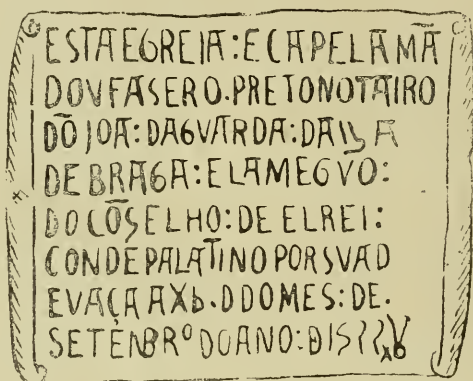 ESTA EGREIA : E CAPELA MĀ
DOV FASER O . PRETONOTAIRO
DŌ JOA : DAGVARDA : DA
DE BRAGA : E LAMEGVO :
DO CŌSELHO : DE ELREI :
CONDE PALATINO POR SVA D
EVAÇA A Xb . D DO MES : DE .
SETENBRº DO ANO :